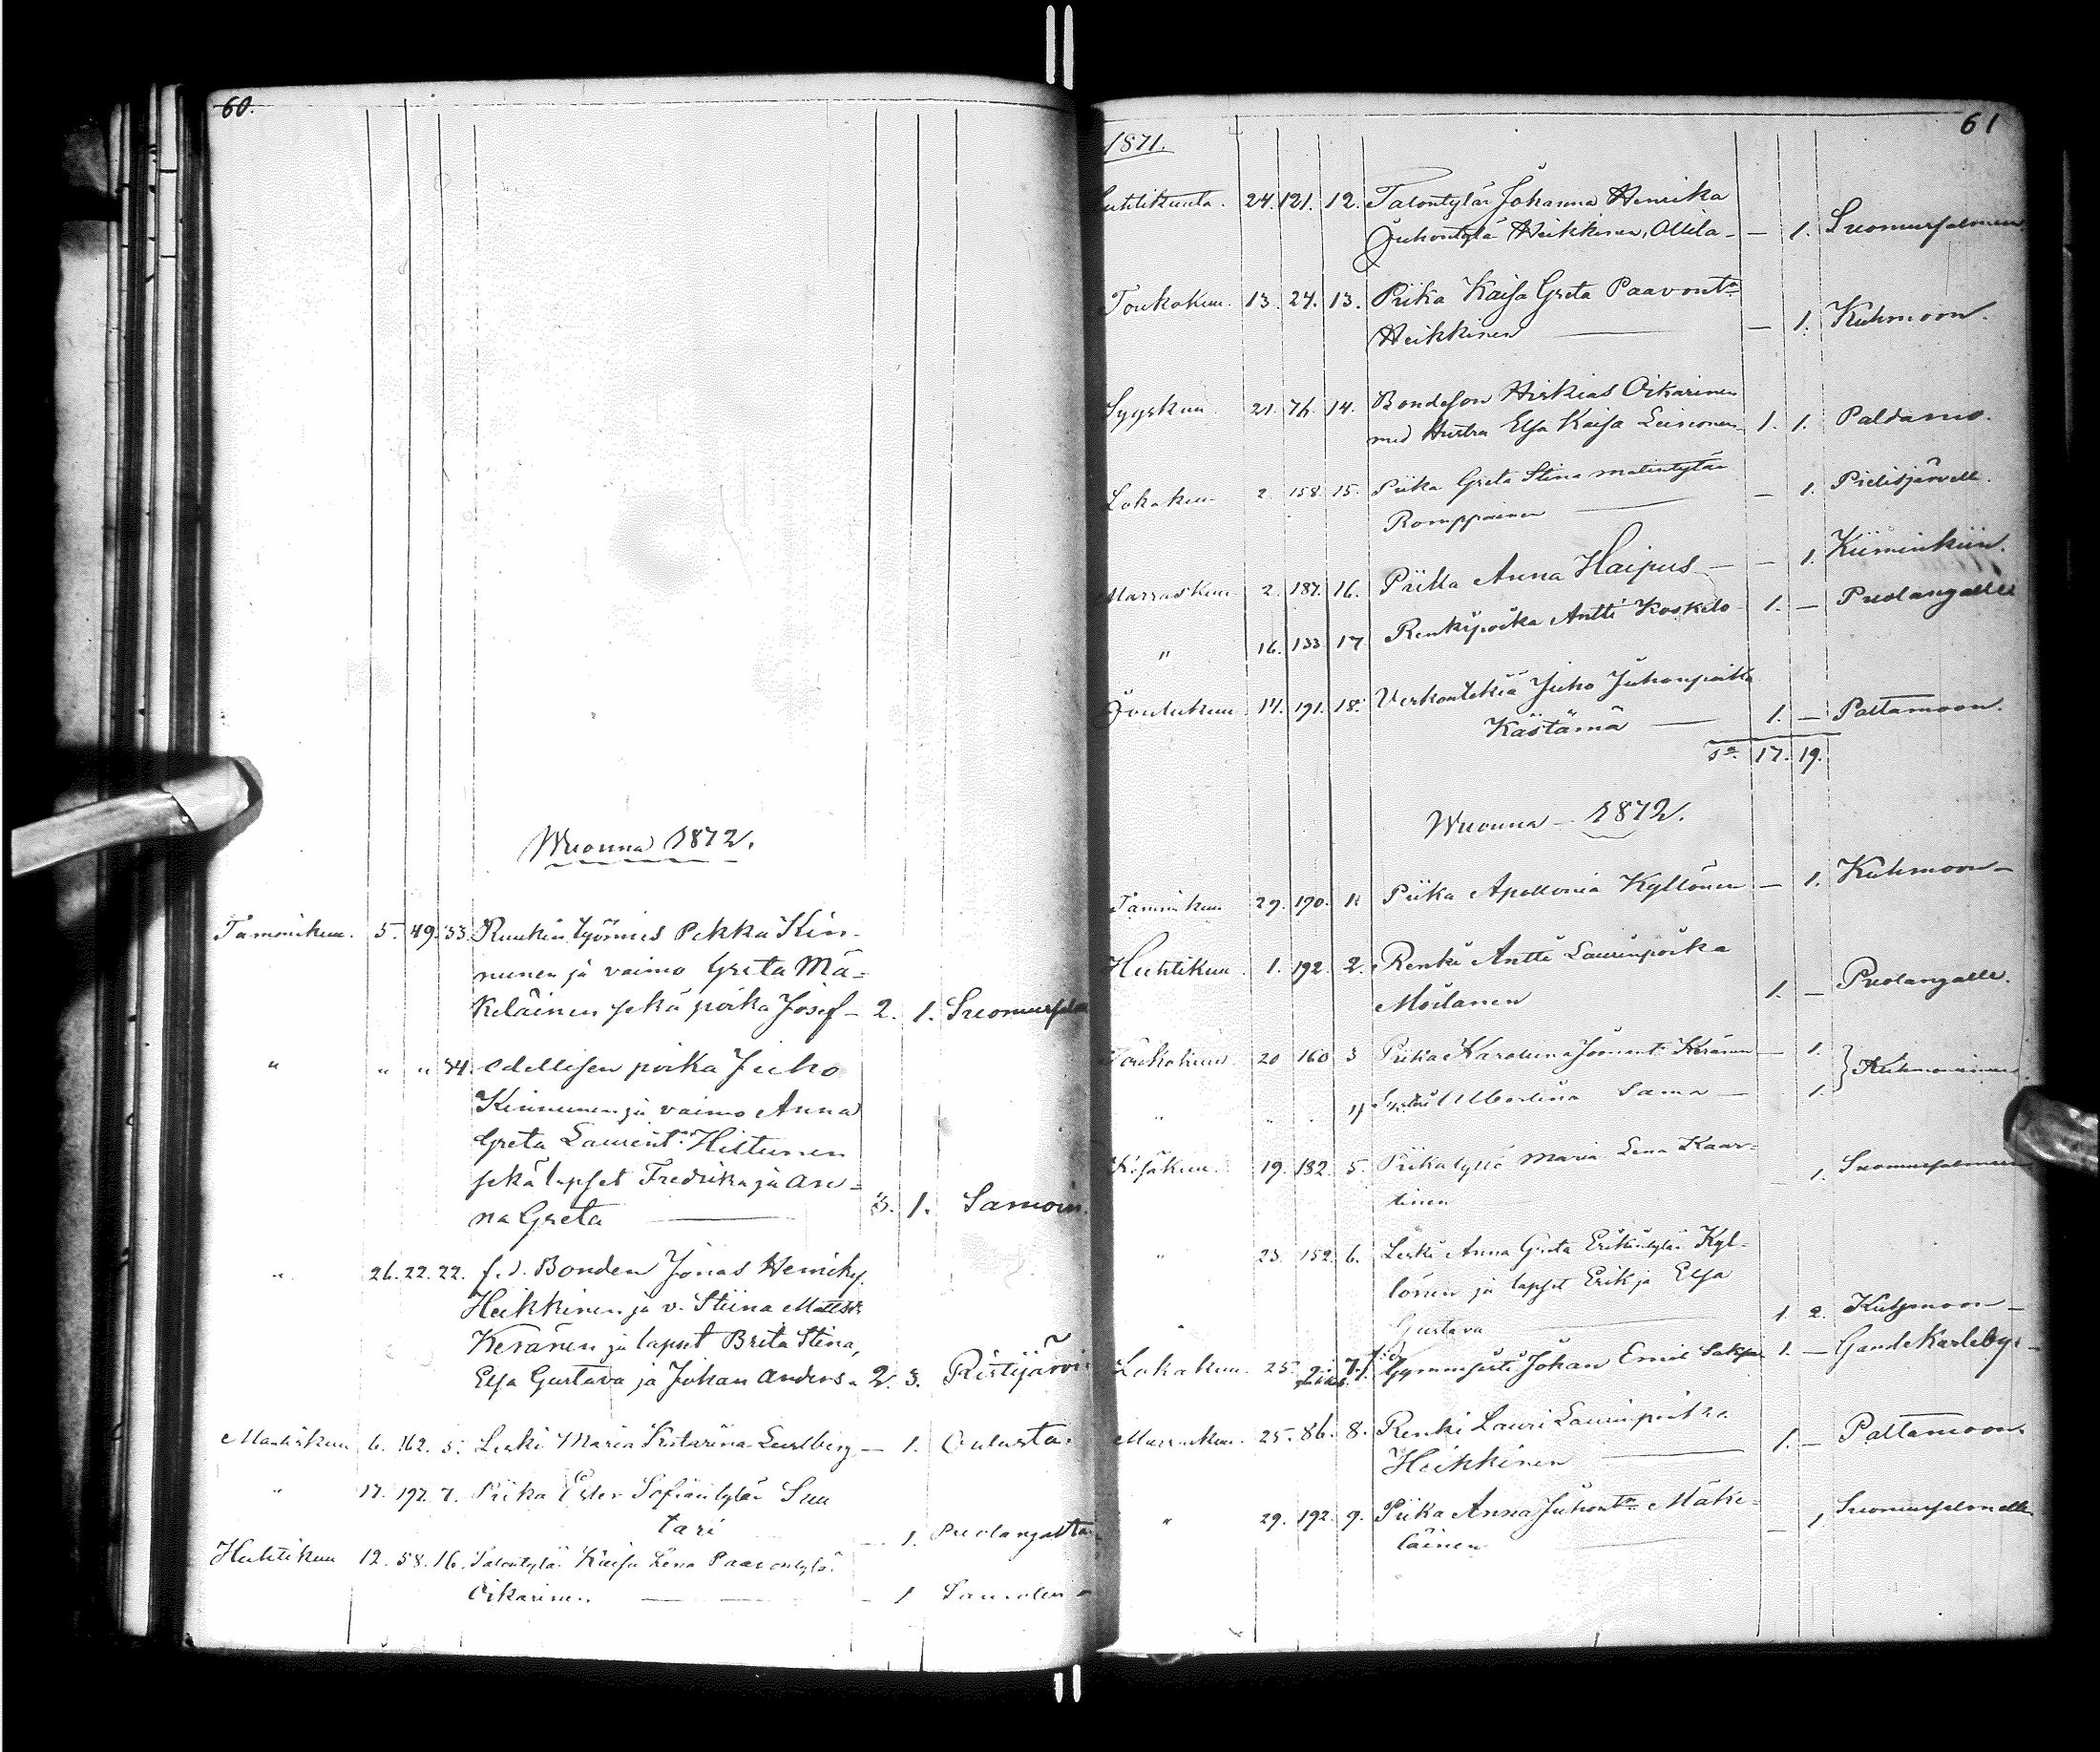 60.
Wuonna 1872.
Tammikuu. 5. 49. 33. Ruukin työmies Pekka Kin-
nunen ja vaimo Greta Mä-
keläinen sekä poika Josef - 2. 1. Suomussalm
" " " 34. edellisen poika Juho
Kinnunen ja vaimo Anna
Greta Laurint:r Hiltunen
sekä lapset Fredrika ja An-
na Greta — 3. 1. Samoin
" 26. 22. 22. f.d. Bonden Jonas Henriks.
Heikkinen ja v. Stiina Mattsdr
Keränen ja lapset Brita Stina,
Elsa Gustava ja Johan Anders - 2. 3. Ristijärvi
Maaliskuu 6. 162. 5. Leski Maria Katarina — 1. Oulusta.
" 17. 197. 7. Piika Ester Sofiantytär Suu
tari — 1. Puolangalta
Huhtikuu 12. 58. 16. Talontytär Kaisa Lena Paavontytär
Oikarinen — — - 1
61
1871.
Huhtikuuta. 24. 121. 12. Talontytär Johanna Henrika
Juhontytär Heikkinen, Ollila - — 1. Suomussalmeen
Toukokuu. 13. 24. 13. Piika Kaisa Greta Paavont:r
Heikkinen — — 1. Kuhmoon.
Syyskuu. 21. 76. 14. Bondeson Hiskias Oikarinen
med Hustru Elsa Kaisa Leinonen 1. 1. Paldamo.
Lokakuu 2. 158. 15. Piika Greta Stina Matintytär
Romppainen — — 1. Pielisjärvelle.
Marraskuu 2. 187. 16. Piika Anna Haipus — — 1. Kiiminkiin.
" 16. 133 17 Renkipoika Antti Koskelo 1. — Puolangalle
Joulukuu 14. 191. 18. Verkontekiä Juho Juhonpoika
Kästämä — 1. — Paltamoon.
S:a 17. 19.
Wuonna - 1872.
Tammikuu 29. 190. 1. Piika Apollonia Kyllönen — 1. Kuhmoon —
Huhtikuu. 1. 192. 2. Renki Antti Laurinpoika
Moilanen 1. — Puolangalle.
Toukokuu 20 160 3 Piika Karolina Keränen — 1.
" " " 4 Albertina Sama — 1. } Kuhmoniemi
Kesäkuu. 19. 132. 5. Piikatyttö Maria Lena Kaar-
tinen — 1. Suomussalmeen
" 23. 152. 6. Leski Anna Greta Erikintytär Kyl-
lönen ja lapset Erik ja Elsa
Gustava — 1. 2. Kuhmoon —
Lokakuu. 25. 7. Johan Emil 1. — Gamlekarleby
Marraskuu. 25. 86. 8. Renki Lauri Laurinpoika
Heikkinen — 1. — Paltamoon.
" 29. 192. 9. Piika Anna Juhont:r Mäke-
läinen — — 1 Suomussalmelle